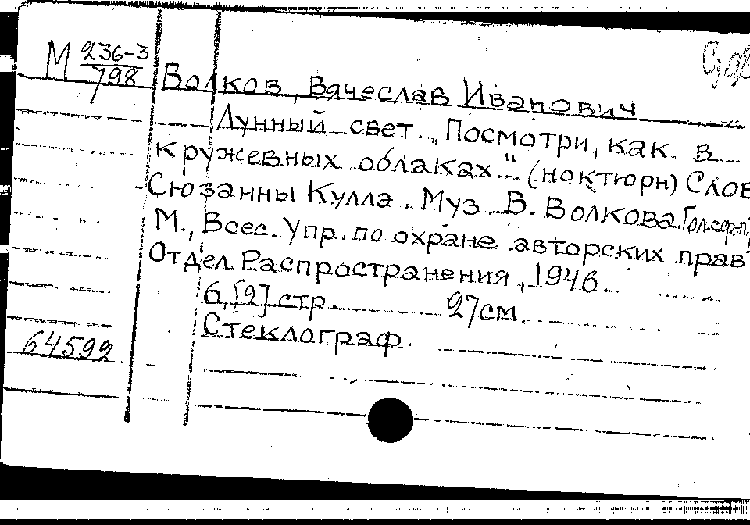 М 236-3
798
Волков, Вячеслав Иванович
Лунный свет. „Посмотри, как в
кружевных облаках..." (ноктюрн) Слов
Сюзанны Кулла. Муз. В. Волкова.
М., Всес. Упр. по охране авторских прав
Отдел Распространения, 1946
6, [2] стр. 27 см
Стеклограф.
64592